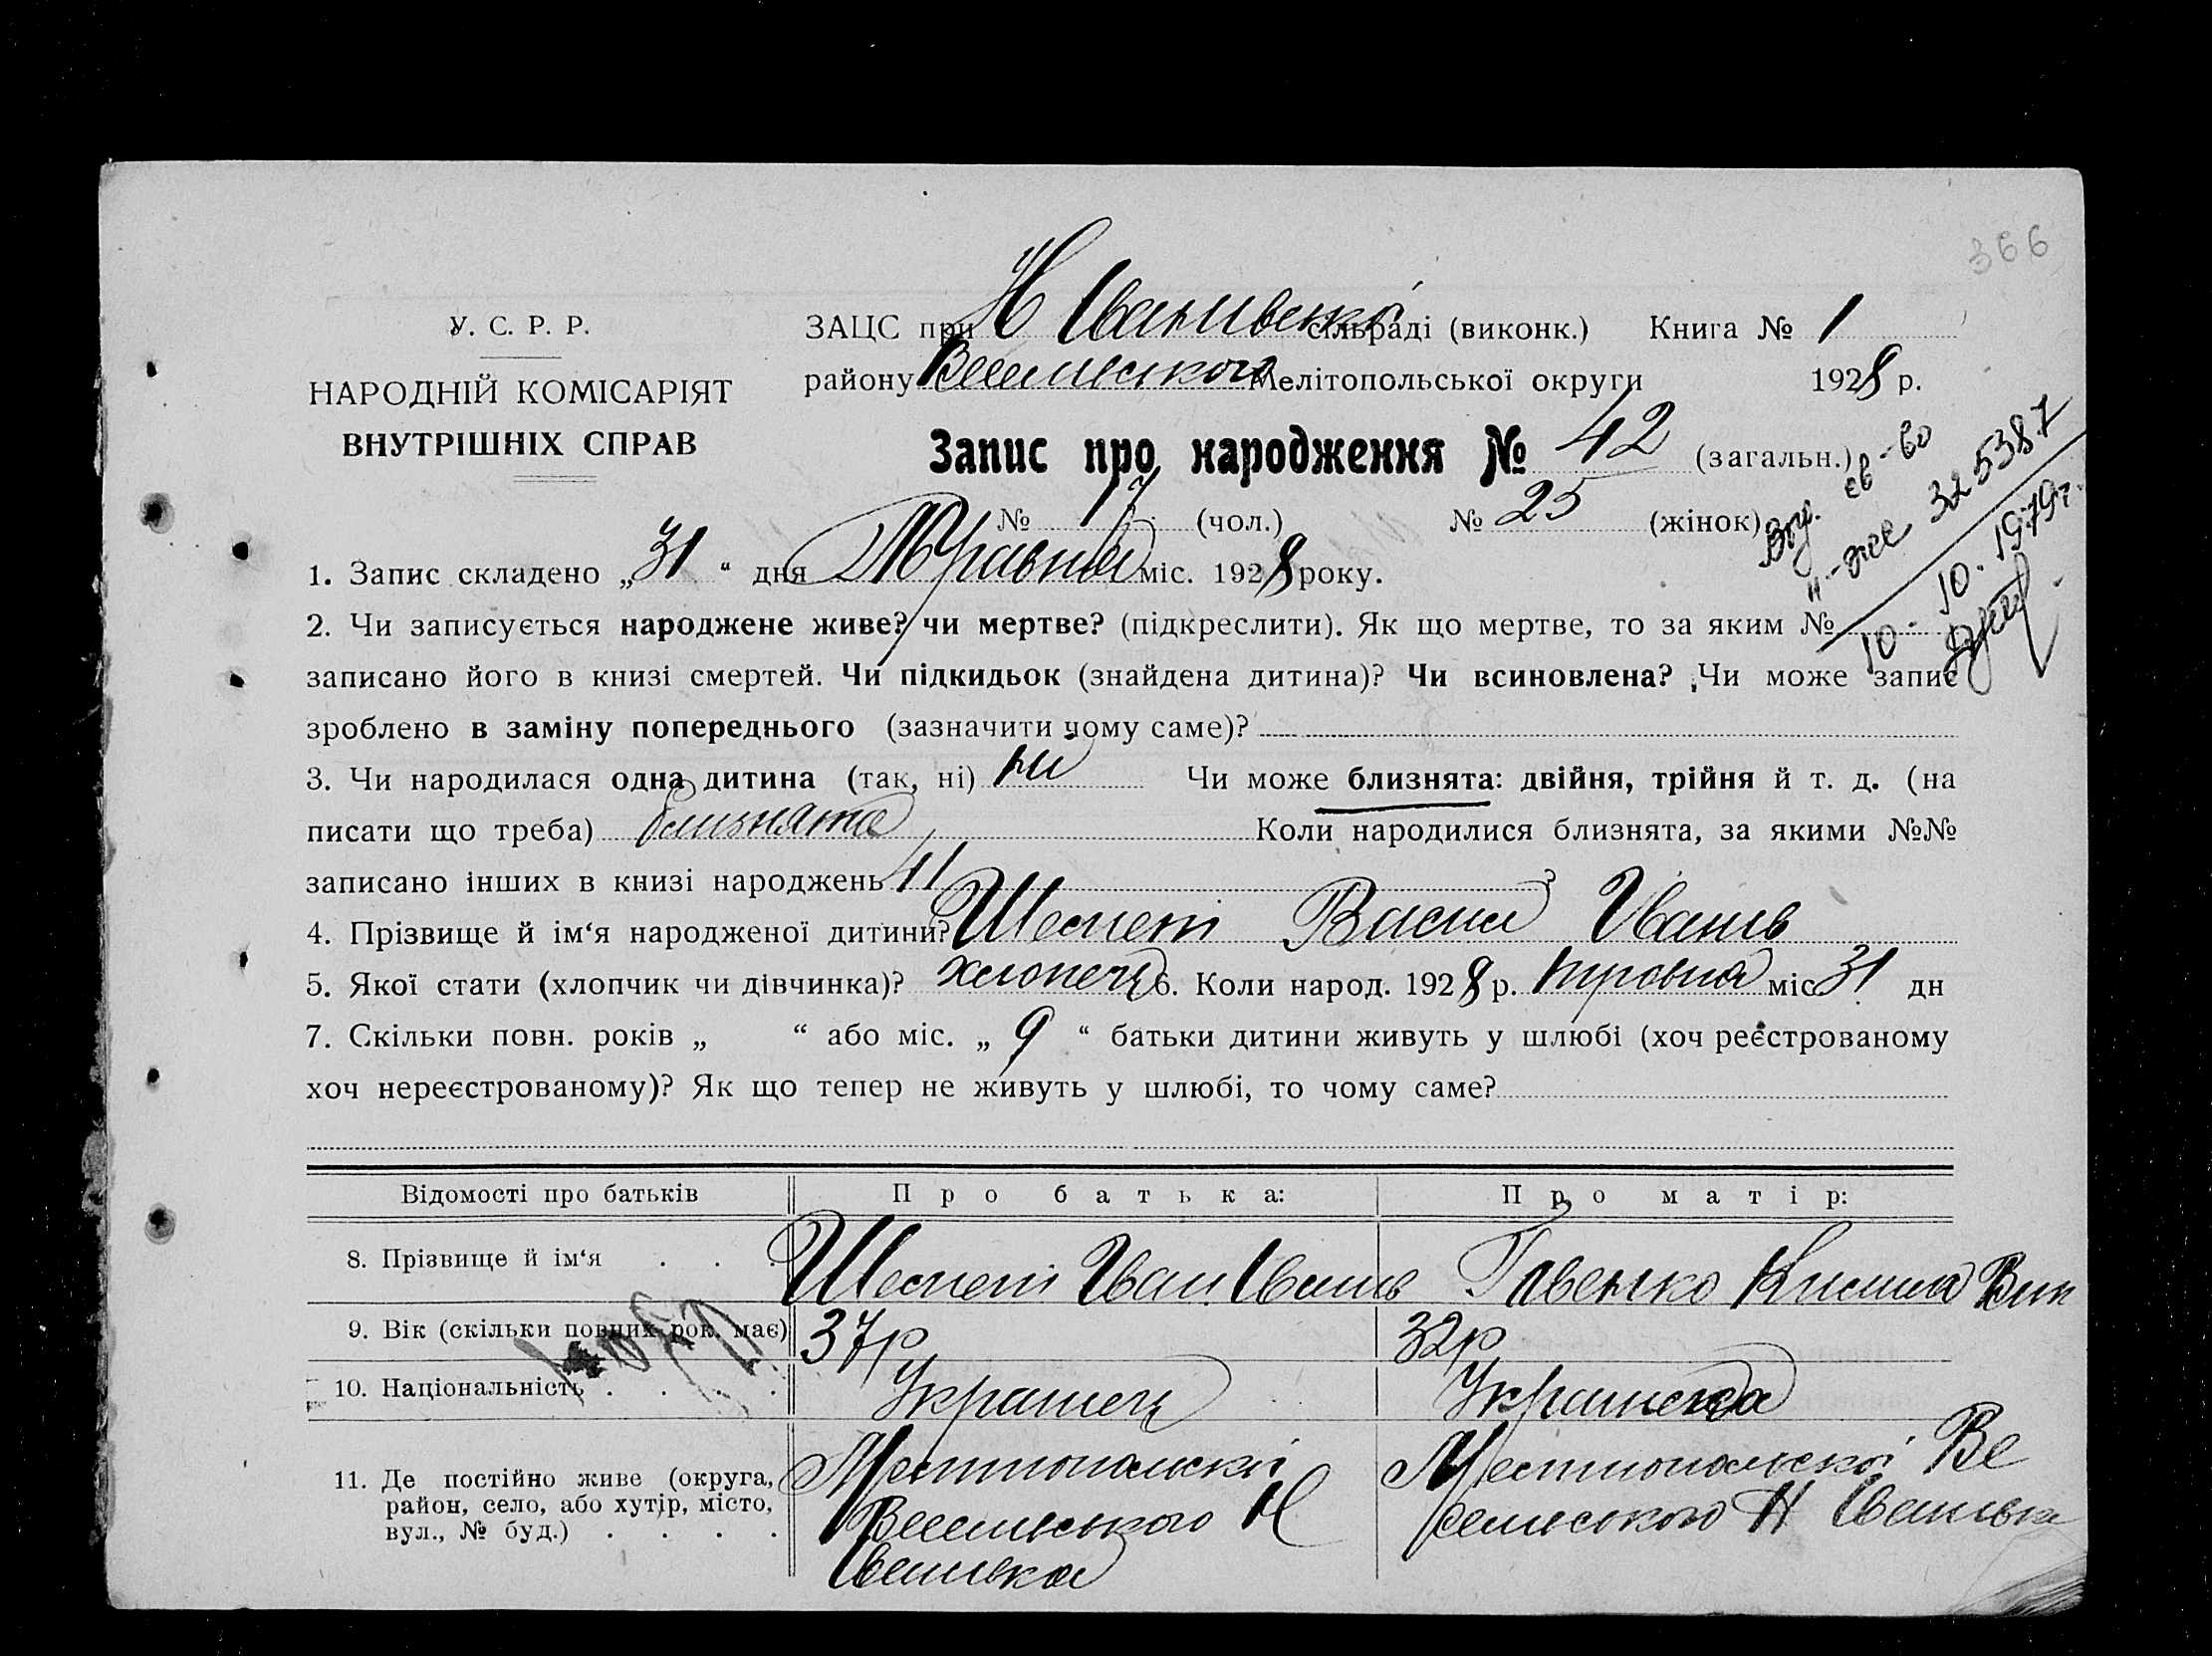 366
У. С. Р. Р.
НАРОДНІЙ КОМІСАРІЯТ
ВНУТРІШНІХ СПРАВ
ЗАЦС при Н Іванивскі сільраді (виконк.) Книга № 1
району Веселиского Мелітопольської округи 1928 р.
Запис про народження № 42 (загальн.)
№ 17 (чол.) № 25 (жінок)
325387
10. 10. 1979г.
1. Запис складено „31“ дня Травня міс. 1928 року.
2. Чи записується народжене живе? чи мертве? (підкреслити). Як що мертве, то за яким №
записано його в книзі смертей. Чи підкидьок (знайдена дитина)? Чи всиновлена? Чи може запис
зроблено в заміну попереднього (зазначити чому саме)?
3. Чи народилася одна дитина (так, ні) ни Чи може близнята: двійня, трійня й т. д. (на
писати що треба) близнята Коли народилися близнята, за якими №№
записано інших в книзі народжень 41 ?
4. Прізвище й ім‘я народженої дитини? Шелест Васил Іванів
5. Якої стати (хлопчик чи дівчинка)? хлопець 6. Коли народ. 1928 р. травня міс 31 дн
7. Скільки повн. років „ “ або міс. „ 9 “ батьки дитини живуть у шлюбі (хоч реєстрованому
хоч нереєстрованому)? Як що тепер не живуть у шлюбі, то чому саме?
Відомості про батьків Про батька: Про матір:
8. Прізвище й ім‘я . . . Шелест Іван Іванів Павенко
9. Вік (скільки повних рок. має) 37р 32р
10. Національність . . . . Украинец Украинка
11. Де постійно живе (округа, Мелитопольскі Мелитопольскоі Ве
район, село, або хутір, місто, Веселиського Н селиського Н Іванивка
вул., № буд.) . . . . Іванивка